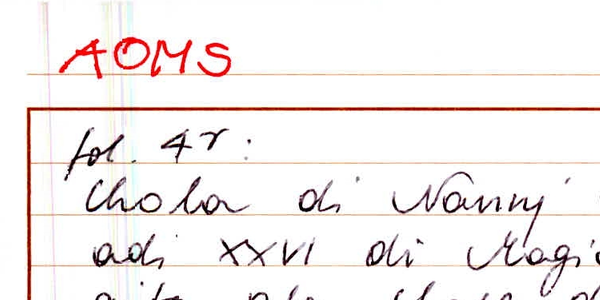 AOMS
fol. 4r:
Chola di Nannj
adi XXVI di